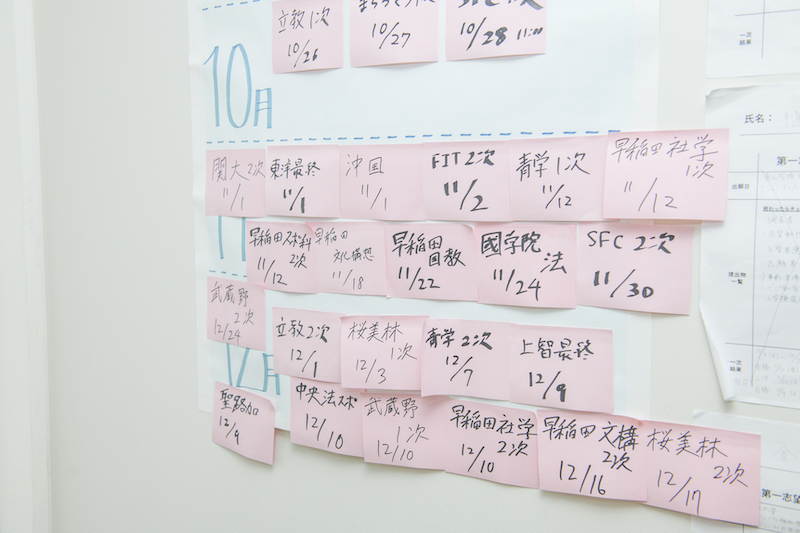 立教1次
10/26
10/27
10/28 11:00
10月
関大2次
11/1
東洋最終
11/1
沖国
11/1
FIT2次
11/2
青学1次
11/12
早稲田社学
1次
11/12
早稲田スポ科
2次
11/12
早稲田
文化構想
11/18
早稲田
国教
11/22
國学院
法
11/24
SFC 2次
11/30
武蔵野
2次
12/24
立教2次
12/1
桜美林
1次
12/3
青学2次
12/7
上智最終
12/9
12月
聖路加
12/9
中央法スポ
12/10
武蔵野
1次
12/10
早稲田社学
2次
12/10
早稲田文構
2次
12/16
桜美林
2次
12/17
一次
結果
氏名：
出願日
提出物
一覧
一次
結果
第一志望